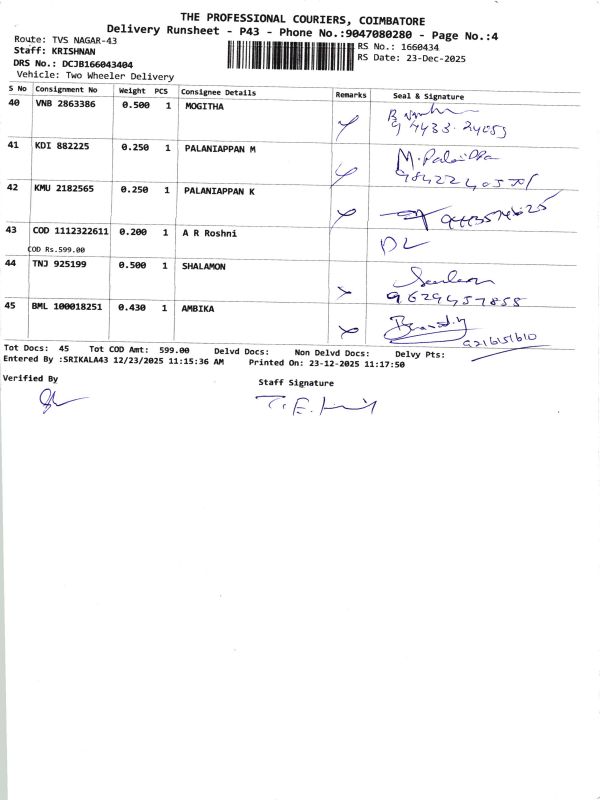 THE PROFESSIONAL COURIERS, COIMBATORE
Delivery Runsheet - P43 - Phone No.:9047080280 - Page No.:4
Route: TVS NAGAR-43
RS No.: 1660434
Staff: KRISHNAN
RS Date: 23-Dec-2025
DRS No.: DCJB166043404
Vehicle: Two Wheeler Delivery
S No Consignment No Weight PCS Consignee Details Remarks Seal & Signature
40 VNB 2863386 0.500 1 MOGITHA
41 KDI 882225 0.250 1 PALANIAPPAN M
M. Palani
42 KMU 2182565 0.250 1 PALANIAPPAN K
43 COD 1112322611 0.200 1 A R Roshni DL
COD Rs.599.00
44 TNJ 925199 0.500 1 SHALAMON
9629457855
45 BML 100018251 0.430 1 AMBIKA
Tot Docs: 45 Tot COD Amt: 599.00 Delvd Docs: Non Delvd Docs: Delvy Pts:
Entered By :SRIKALA43 12/23/2025 11:15:36 AM Printed On: 23-12-2025 11:17:50
Verified By
Staff Signature